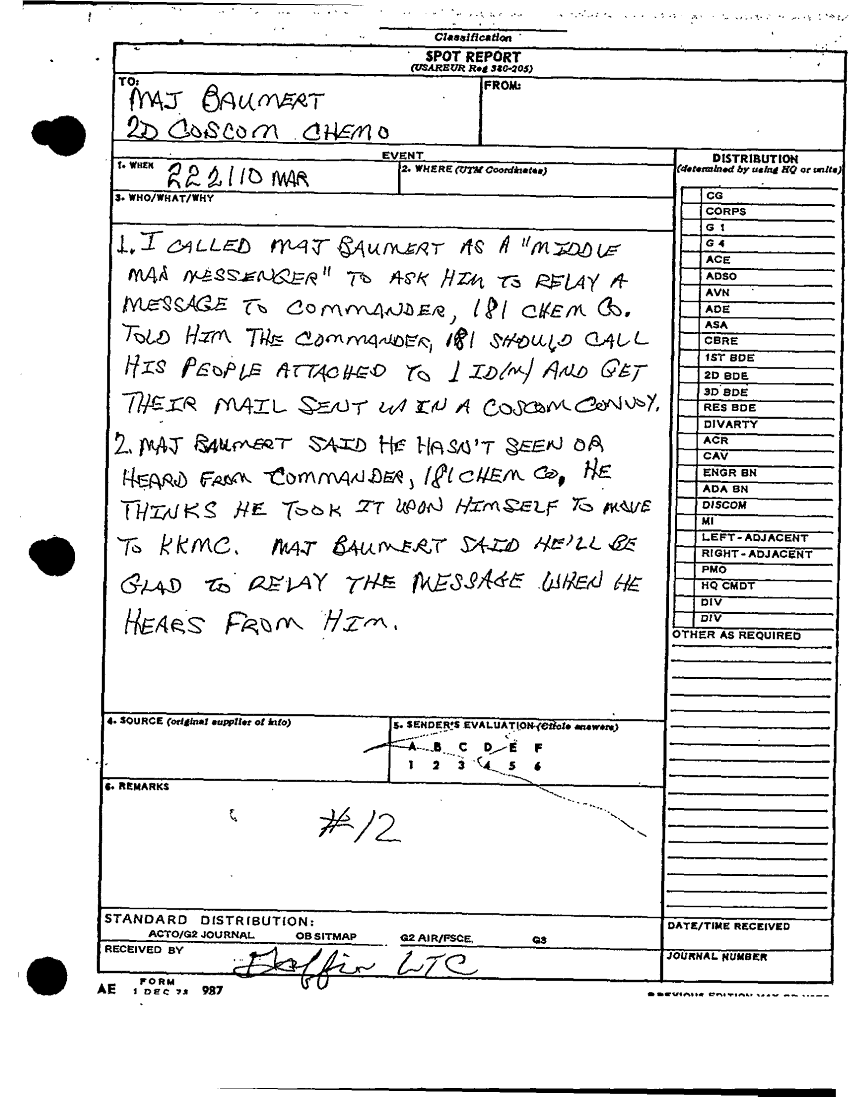 Classification
SPOT REPORT
(USAREUR Reg 380-205)
TO:
MAJ BAUMERT
2D COSCOM CHEMO
FROM:
EVENT
1. WHEN 222110 MAR
2. WHERE (UTM Coordinates)
3. WHO/WHAT/WHY
1. I CALLED MAJ BAUMERT AS A "MIDDLE
MAN MESSENGER" TO ASK HIM TO RELAY A
MESSAGE TO COMMANDER, 181 CHEM CO.
TOLD HIM THE COMMANDER, 181 SHOULD CALL
HIS PEOPLE ATTACHED TO 1 ID(M) AND GET
THEIR MAIL SENT IN A COSCOM CONVOY.
2. MAJ BAUMERT SAID HE HASN'T SEEN OR
HEARD FROM COMMANDER, 181 CHEM CO, HE
THINKS HE TOOK IT UPON HIMSELF TO MOVE
TO KKMC. MAJ BAUMERT SAID HE'LL BE
GLAD TO RELAY THE MESSAGE WHEN HE
HEARS FROM HIM.
DISTRIBUTION
(determined by using HQ or units)
CG
CORPS
G 1
G 4
ACE
ADSO
AVN
ADE
ASA
CBRE
1ST BDE
2D BDE
3D BDE
RES BDE
DIVARTY
ACR
CAV
ENGR BN
ADA BN
DISCOM
MI
LEFT-ADJACENT
RIGHT-ADJACENT
PMO
HQ CMDT
DIV
DIV
OTHER AS REQUIRED
4. SOURCE (original supplier of info)
5. SENDER'S EVALUATION (Circle answers)
A B C D E F
1 2 3 4 5 6
6. REMARKS
#12
STANDARD DISTRIBUTION:
ACTO/G2 JOURNAL OB SITMAP G2 AIR/FSCE. G3
RECEIVED BY
LTC
DATE/TIME RECEIVED
JOURNAL NUMBER
AE FORM 1 DEC 78 987